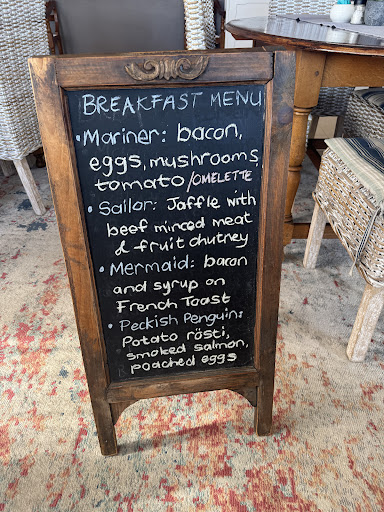 BREAKFAST MENU
• Mariner: bacon,
eggs, mushrooms,
tomato/OMELETTE
• Sailor: Jaffle with
beef minced meat
& fruit chutney
• Mermaid: bacon
and syrup on
French Toast
• Peckish Penguin:
Potato rösti,
smoked salmon,
poached eggs